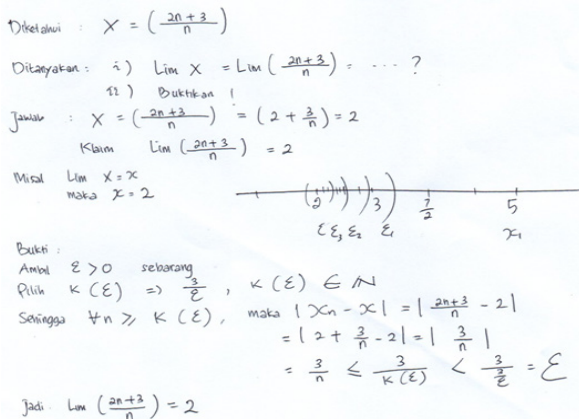 Diketahui : X = (2n+3/n)
Ditanyakan : i) Lim X = Lim (2n+3/n) = .... ?
ii) Buktikan !
Jawab : X = (2n+3/n) = (2 + 3/n) = 2
Klaim Lim (2n+3/n) = 2
Misal Lim X = x
maka x = 2
2 3 7/2 5
ε ε₃ ε₂ ε₁ x₁
Bukti :
Ambil ε > 0 sebarang
Pilih K(ε) => 3/ε , K(ε) ∈ IN
Sehingga ∀n ≥ K(ε), maka |xn - x| = |2n+3/n - 2|
= |2 + 3/n - 2| = |3/n|
= 3/n ≤ 3/K(ε) < 3/3/ε = ε
Jadi Lim (2n+3/n) = 2